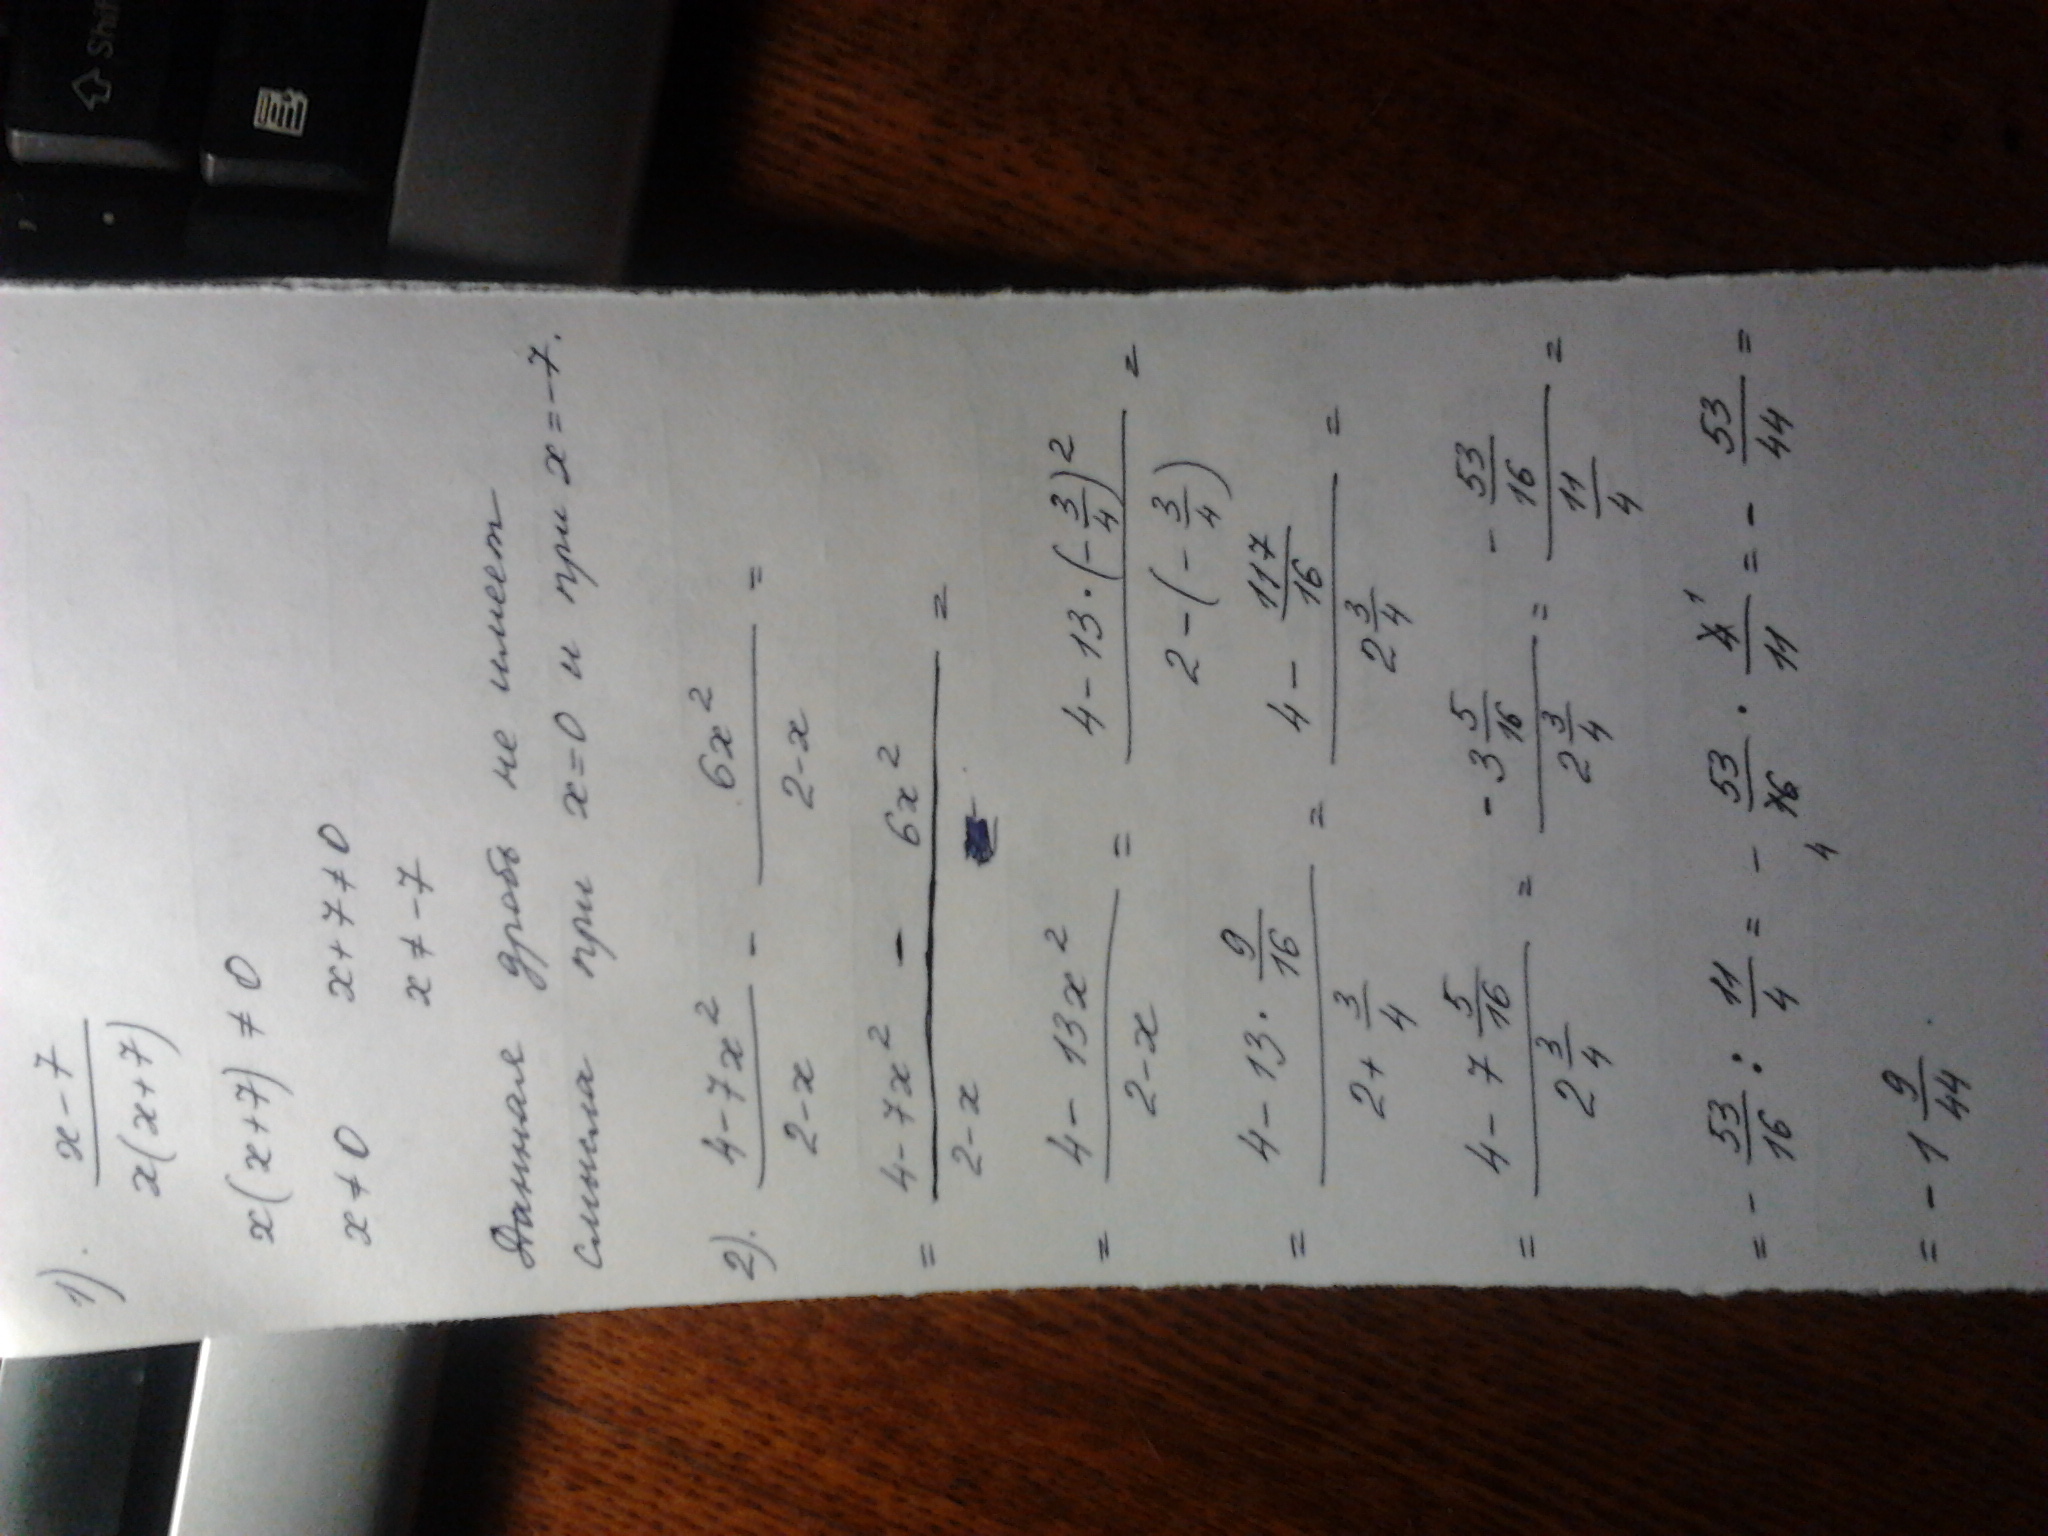 Shift
1). \frac{x-7}{x(x+7)}
x(x+7) ≠ 0
x ≠ 0    x+7 ≠ 0
x ≠ -7
Данная дробь не имеет
смысла при x=0 и при x=-7.
2). \frac{4-7x^2}{2-x} - \frac{6x^2}{2-x} =
= \frac{4-7x^2 - 6x^2}{2-x} =
= \frac{4-13x^2}{2-x} = \frac{4-13·(-\frac{3}{4})^2}{2-(-\frac{3}{4})} =
= \frac{4-13·\frac{9}{16}}{2+\frac{3}{4}} = \frac{4-\frac{117}{16}}{2\frac{3}{4}} =
= \frac{4-7\frac{5}{16}}{2\frac{3}{4}} = \frac{-3\frac{5}{16}}{2\frac{3}{4}} = \frac{-\frac{53}{16}}{\frac{11}{4}} =
= -\frac{53}{16} : \frac{11}{4} = -\frac{53}{16 4} · \frac{4 1}{11} = -\frac{53}{44} =
= -1\frac{9}{44}.